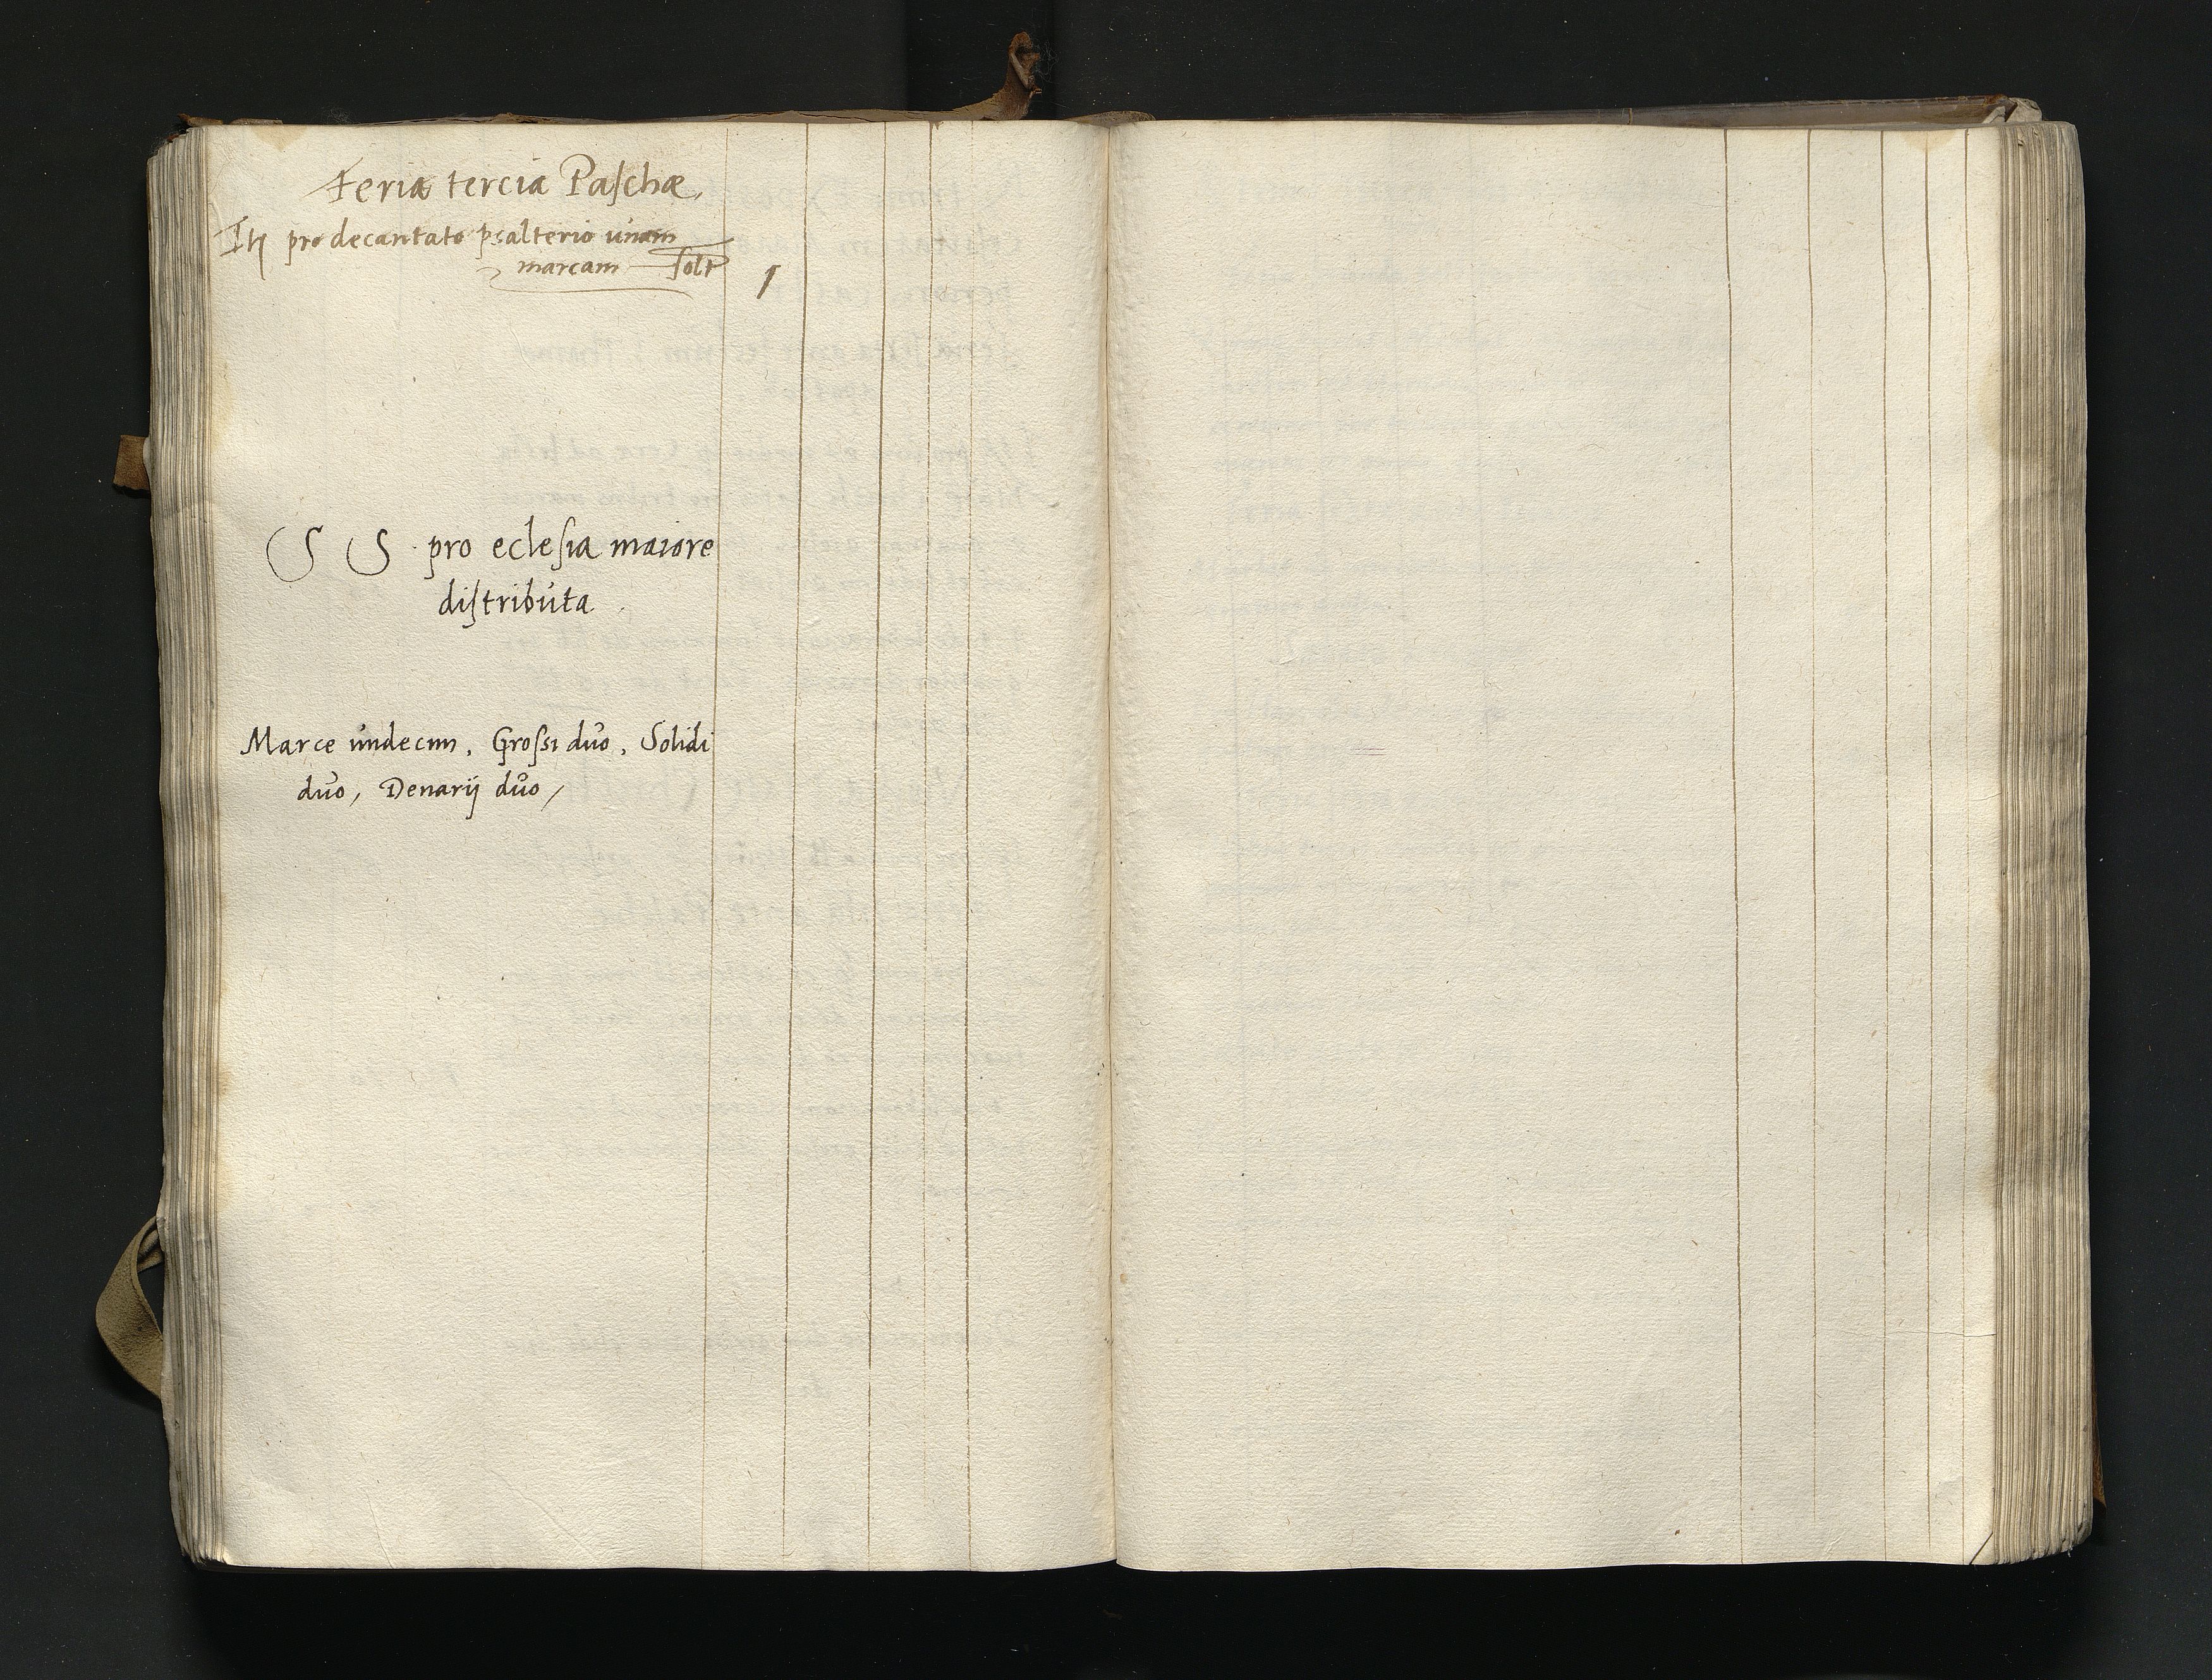 Feria tercia Paſchæ,
Itꝫ pro decantato psalterio unam
marcam ſolt 1
S S pro ecleſia maiore
diſtributa.
Marce undecim, Groſsi duo, Solidi
duo, Denarij duo,